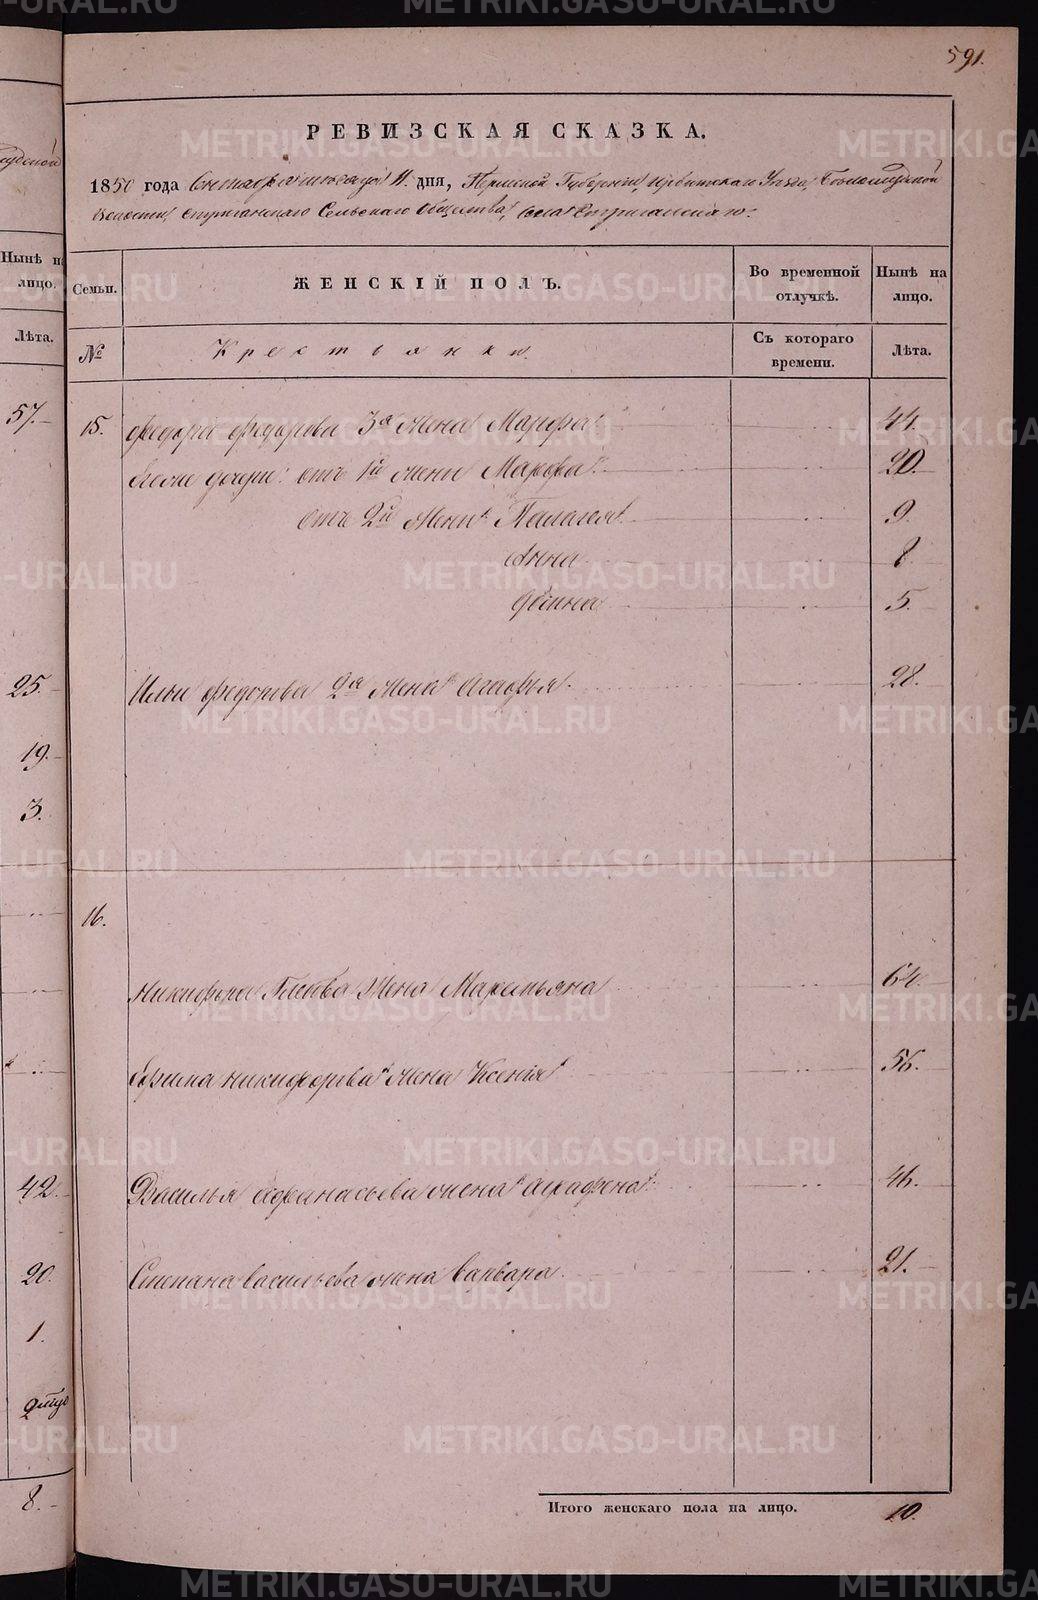 591.
РЕВИЗСКАЯ СКАЗКА.
1850 года Сентября месяца 11. дня, Пермской Губернии, Ирбитскаго Уезда,
Волости, Стриганскаго Сельскаго Общества, Села Стриганскаго:
Нынѣ на лицо.
Лѣта.
Семьи.
№
ЖЕНСКІЙ ПОЛЪ.
Крестьянки.
Во временной отлучкѣ.
Съ котораго времени.
Нынѣ на лицо.
Лѣта.
57.
15. Федора Федорова 3я жена Марфа 44.
его же дочери: отъ 1й жены Марфа 20.
отъ 2й жены Палагея 9.
Анна 8
5.
25.
Ильи Федорова 2я жена Агафья 28.
19.
3.
16.
Никифора жена Маремьяна 64.
Ефима Никифорова жена Ксенія 56.
42.
Василья Афанасьева жена Аграфена 46.
20.
Степана Васильева жена Варвара 21.
1.
8.
Итого женскаго пола на лицо. 10.
METRIKI.GASO-URAL.RU